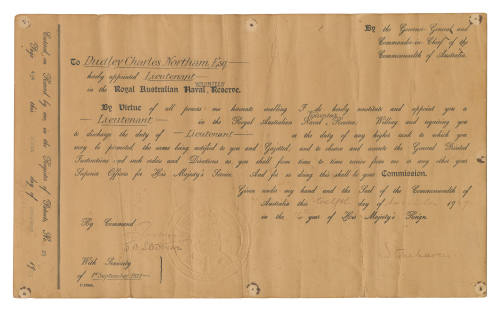 By the Governor General and
Commander-in-Chief of the
Commonwealth of Australia.
To Dudley Charles Northam, Esq
hereby appointed Lieutenant
VOLUNTEER
in the Royal Australian Naval Reserve.
By Virtue of all powers me hereunto enabling I do hereby constitute and appoint you a
Lieutenant in the Royal Australian Naval Reserve, Willing and requiring you
Volunteer
to discharge the duty of Lieutenant or the duty of any higher rank to which you
may be promoted, the same being notified to you and Gazetted, and to observe and execute the General Printed
Instructions and such orders and Directions as you shall from time to time receive from me or any other your
Superior Officers for His Majesty's Service. And for so doing this shall be your Commission.
Given under my hand and the Seal of the Commonwealth of
Australia this day of 19
in the year of His Majesty's Reign.
By Command
With Seniority
of 1st September 1937
Entered on Record by me, in the Register of Patents, No. 23
Page this day of 19